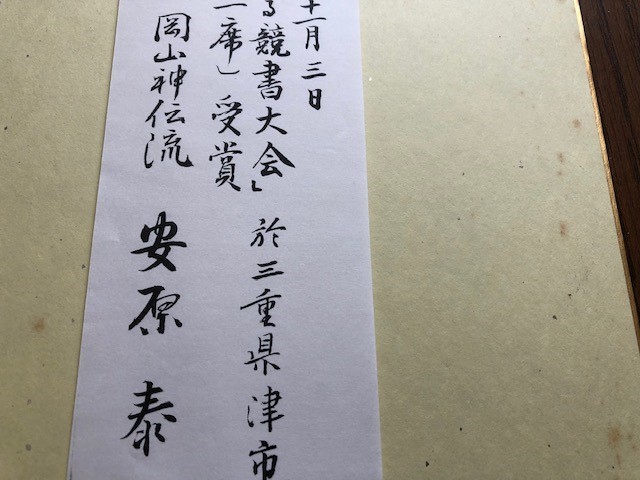 十一月三日
る競書大会」 於三重県津市
一席」受賞
岡山神伝流 安原 泰